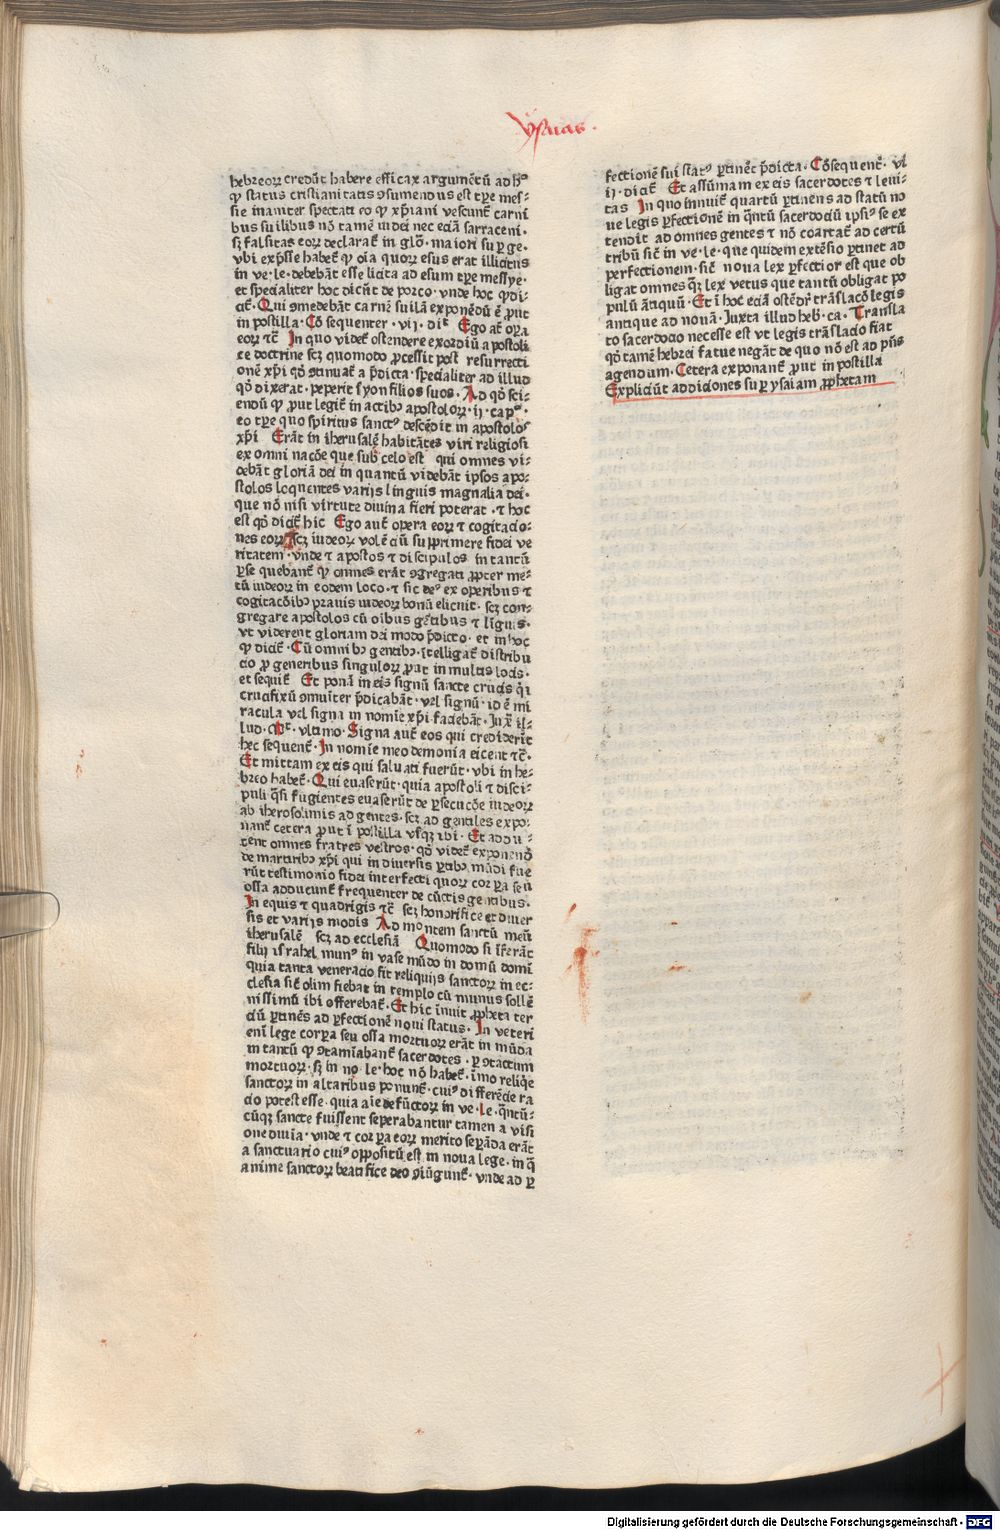 ysaias.
hebreoꝝ credūt habere efficax argumētū ad hᵒ
ꝙ status cristianitatis ꝯsumendus est tꝑe mes-
sie inaniter spectati eo ꝙ xp̄iani vescunt̄ carni
bus suilibus nō tamē iudei nec eciā sarraceni.
sꝫ falsitas eoꝝ declarat̄ in glō. maiori suꝑ ge.
vbi exp̄sse habet̄ ꝙ oīa quoꝝ esus erat illicitus
in ve. le. debebāt esse licita ad esum tꝑe messye.
et specialiter hoc dicūt de porco. vnde hoc ꝙ di-
cit̄. Qui ꝯmedebāt carnē suilā exponēdū ē ꝓut
in postilla. Cōsequenter. vij. dic̄ Ego at̄ oꝑa
eoꝝ ⁊c̄ In quo videt̄ ostendere exordiū apostoli
ce doctrine scꝫ quomodo ꝓcessit post resurrecti
onē xp̄i qd̄ ꝯtinuat̄ a p̄dicta. specialiter ad illud
qd̄ dixerat. peperit syon filios suos. Ad qd̄ sci-
endū ꝙ ꝓut legit̄ in actibꝰ apostoloꝝ. ij. capᵒ.
eo tꝑe quo spiritus sanctꝰ descēdit in apostolos
xp̄i Erāt in iherusalē habitātes viri religiosi
ex omni nacōe que sub celo est qui omnes vi-
debāt gloriā dei in quantū videbāt ipsos apo-
stolos loquentes varijs linguis magnalia dei.
que nō nisi virtute diuina fieri poterat. ⁊ hoc
est qd̄ dicit̄ hic Ego aut̄ opera eoꝝ ⁊ cogitacio-
nes eoꝝ scꝫ iudeoꝝ volēciū supprimere fidei ve
ritatem. vnde ⁊ apostos ⁊ discipulos in tantū
ꝑsequebant̄ ꝙ omnes erāt ꝯgregati ꝓpter me-
tū iudeoꝝ in eodem loco. ⁊ sic deꝰ ex operibus ⁊
cogitacōibꝰ prauis iudeoꝝ bonū elicuit. scꝫ con-
gregare apostolos cū oībus gētibus ⁊ līguis.
vt viderent gloriam dei modo p̄dicto. et in hoc
ꝙ dicit̄. Cū omnibꝰ gentibꝰ. ītelligat̄ distribu
cio ꝓ generibus singuloꝝ ꝓut in multis locis.
et sequit̄ Et ponā in eis signū sancte crucis qͥ
crucifixū ꝯmuīter p̄dicabāt. vel signū. id ē mi
racula vel signa in nomīe xp̄i faciebāt. Juxͣ il-
lud. Mͬ. vltimo. Signa aut̄ eos qui crediderīt
hec sequent̄. In nomīe meo demonia eicent ⁊c̄.
Et mittam ex eis qui saluati fuerūt. vbi in he-
breo habet̄. Qui euaserūt. quia apostoli ⁊ disci-
puli qͣsi fugientes euaserūt de ꝑsecucōe iudeoꝝ
ab iherosolimis ad gentes. scꝫ ad gentiles expo-
nant̄ cetera ꝓut ī postilla vsqꝫ ibi. Et addu-
cent omnes fratres vestros. qd̄ videt̄ exponendū
de martiribꝰ xp̄i qui in diuersis ꝑtibꝰ mūdi fue
rūt testimonio fidei interfecti quoꝝ corꝑa seu
ossa adducunt̄ frequenter de cūctis gentibus.
In equis ⁊ quadrigis ⁊c̄ scꝫ honorifice et diuer
sis et varijs modis Ad montem sanctū meū
iherusalē scꝫ ad ecclesiā Quomodo si īferāt
filij israhel munꝰ in vase mūdo in domū domī
quia tanta veneracio fit reliquijs sanctoꝝ in ec-
clesia sic̄ olim fiebat in templo cū munus sollē
nissimū ibi offerebat̄. Et hic īnuit ꝓpheta ter
ciū ꝑtinēs ad ꝑfectionē noui status. In veteri
enī lege corꝑa seu ossa mortuoꝝ erāt in mūda
in tantū ꝙ ꝯtamīabant̄ sacerdotes. ꝑ ꝯtactum
mortuoꝝ. sꝫ in no. le. hoc nō habet̄. īmo reliqͥe
sanctoꝝ in altaribus ponunt̄. cuiꝰ differēcie ra
cio potest esse. quia aīe defūctoꝝ in ve. le. qͣntū-
cūqꝫ sancte fuissent seperabantur tamen a visi
one diuīa. vnde ⁊ corꝑa eoꝝ merito seꝑāda erāt
a sanctuario cuiꝰ oppositū est in noua lege. in qͣ
anime sanctoꝝ beatifice deo ꝯiūgunt̄. vnde ad ꝑ
fectionē sui statꝰ ꝑtinēt p̄dicta. Cōsequent̄. vi
ij. dicit̄ Et assūmam ex eis sacerdotes ⁊ leui-
tas In quo innuit̄ quartū ꝑtinens ad statū no
ue legis ꝑfectionē in qͣntū sacerdociū ipsiꝰ se ex
tendit ad omnes gentes ⁊ nō coartat̄ ad certū
tribū sic̄ in ve. le. que quidem extēsio ꝑtinet ad
perfectionem. sic̄ noua lex ꝑfectior est que ob
ligat omnes qͣꝫ lex vetus que tantū obligat po
pulū ātiquū. Et ī hoc eciā ostēdit̄ trāslacō legis
antique ad nouā. Juxta illud heb̄. ca. Transla
to sacerdocio necesse est vt legis trāslacio fiat
qd̄ tamē hebrei fatue negāt de quo nō est ad pn̄s
agendum. Cetera exponant̄ ꝓut in postilla
Expliciūt addiciones suꝑ ysaiam ꝓphetam
Digitalisierung gefördert durch die Deutsche Forschungsgemeinschaft - DFG